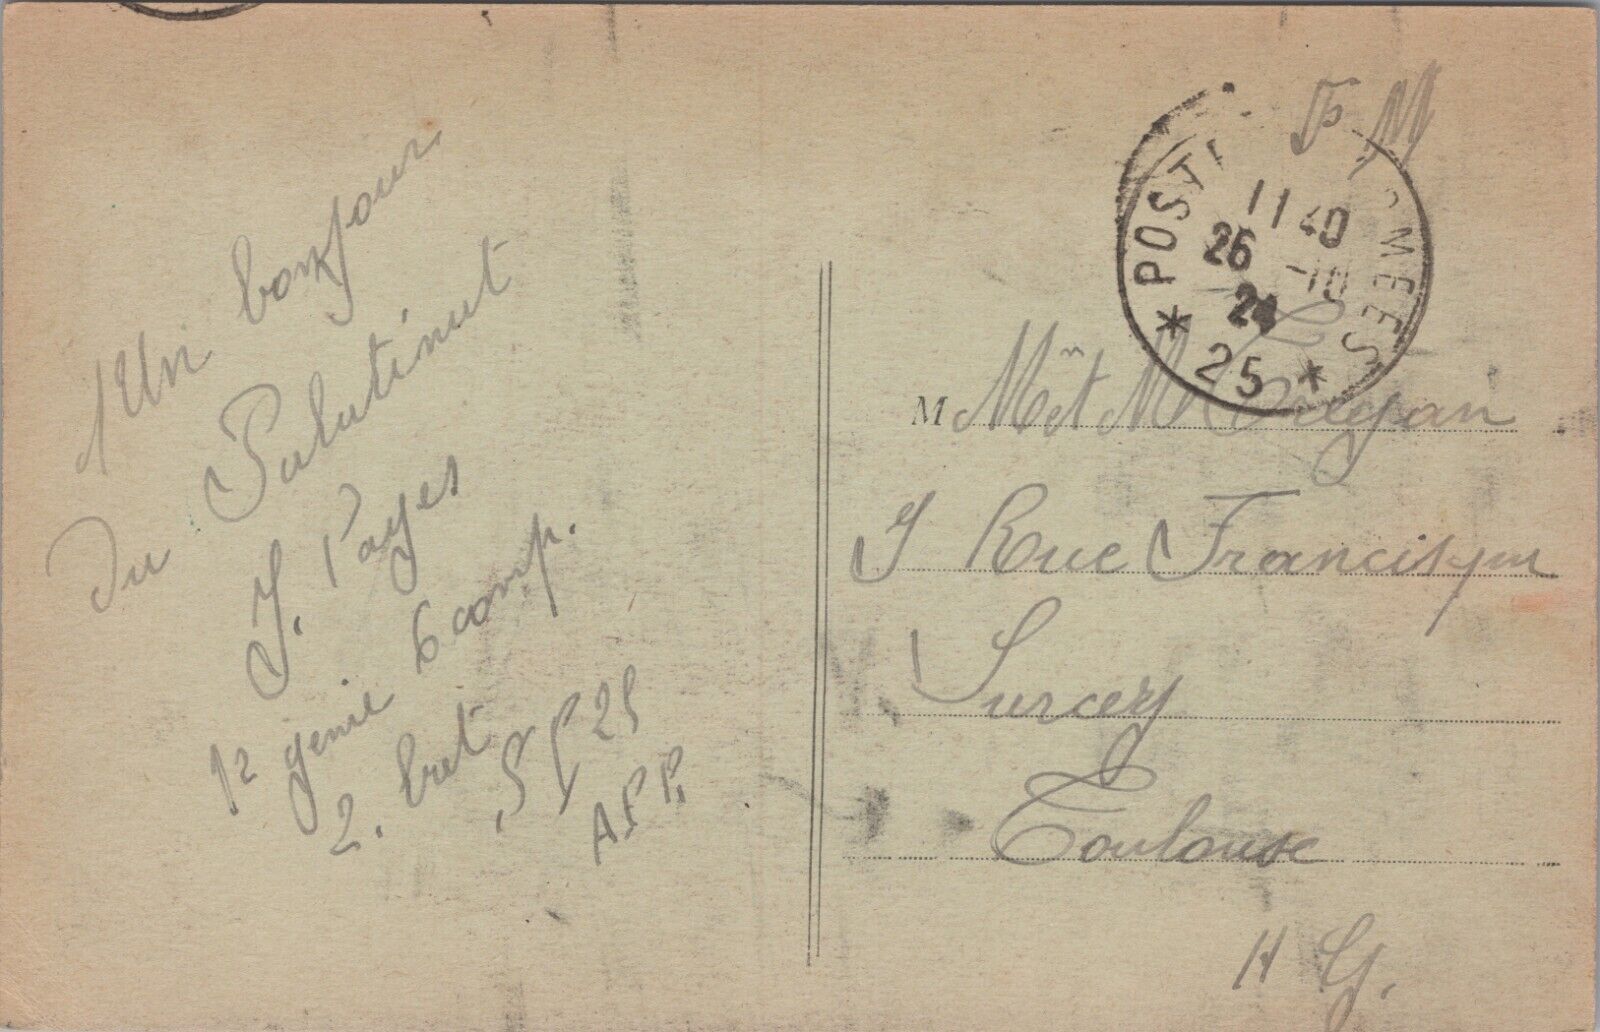 Un bonjour
Du Palatinat
J. Pages
12 genie 6 comp.
2. bret
S P 25
A F R
F M
POSTES ARMEES
11 40
26 -10
24
* 25 *
M Mr et Me
7 Rue Francisque
Surcey
Toulouse
H G.